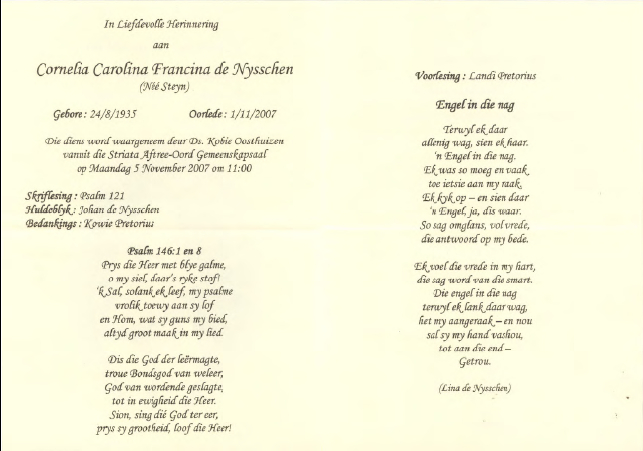 In Liefdevolle Herinnering
aan
Cornelia Carolina Francina de Nysschen
(Nié Steyn)
Gebore : 24/8/1935 Oorlede : 1/11/2007
Die diens word waargeneem deur Ds. Kobie Oosthuizen
vanuit die Striata Aftree-Oord Gemeenskapsaal
op Maandag 5 November 2007 om 11:00
Skriflesing : Psalm 121
Huldeblyk : Johan de Nysschen
Bedankings : Kowie Pretorius
Psalm 146:1 en 8
Prys die Heer met blye galme,
o my siel, daar's ryke stof!
'k Sal, solank ek leef, my psalme
vrolik toewy aan sy lof
en Hom, wat sy guns my bied,
altyd groot maak in my lied.
Dis die God der leërmagte,
troue Bondsgod van weleer,
God van wordende geslagte,
tot in ewigheid die Heer.
Sion, sing dié God ter eer,
prys sy grootheid, loof die Heer!
Voorlesing : Landi Pretorius
Engel in die nag
Terwyl ek daar
allenig wag, sien ek haar.
'n Engel in die nag.
Ek was so moeg en vaak
toe ietsie aan my raak.
Ek kyk op – en sien daar
'n Engel, ja, dis waar.
So sag omglans, vol vrede,
die antwoord op my bede.
Ek voel die vrede in my hart,
die sag word van die smart.
Die engel in die nag
terwyl ek lank daar wag,
het my aangeraak – en nou
sal sy my hand vashou,
tot aan die end –
Getrou.
(Lina de Nysschen)